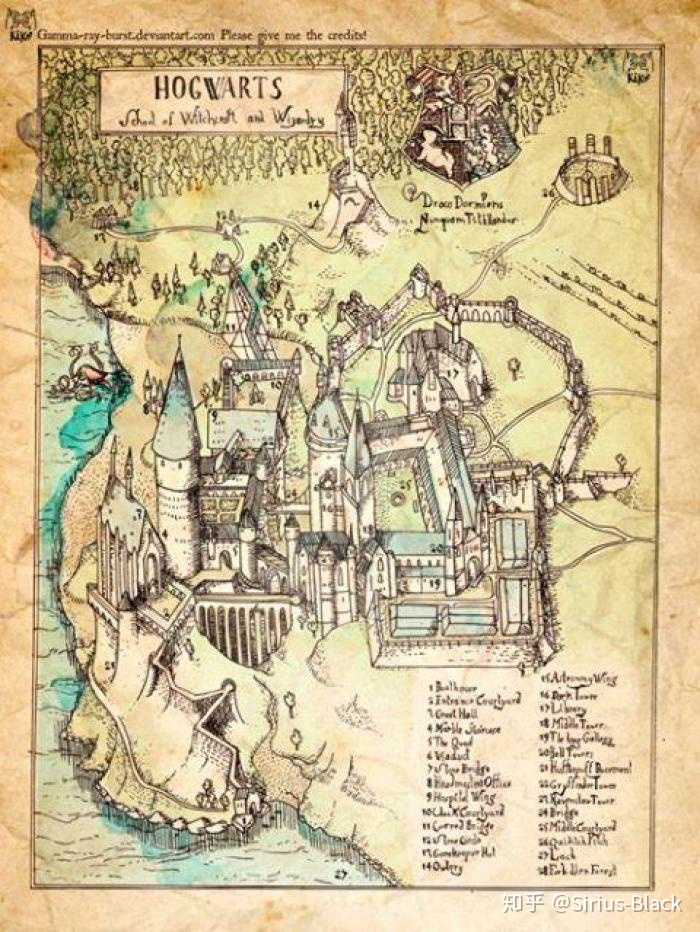 Gamma-ray-burst.deviantart.com Please give me the credits!
HOGWARTS
School of Witchcraft and Wizardry
Draco Dormiens
Nunquam Titillandus
14
26
17
11
10
9
17
7
4
16
25
18
20
19
27
1 Boathouse
2 Entrance Courtyard
3 Great Hall
4 Marble Staircase
5 The Quad
6 Viaduct
7 Stone Bridge
8 Headmasters Office
9 Hospital Wing
10 Clock Courtyard
11 Covered Bridge
12 Stone Circle
13 Gamekeeper Hut
14 Owlery
15 Astronomy Wing
16 Dark Tower
17 Library
18 Middle Tower
19 The long Gallery
20 Bell Towers
21 Hufflepuff Basement
22 Gryffindor Tower
23 Ravenclaw Tower
24 Bridge
25 Middle Courtyard
26 Quidditch Pitch
27 Loch
28 Forbidden Forest
知乎 @Sirius-Black